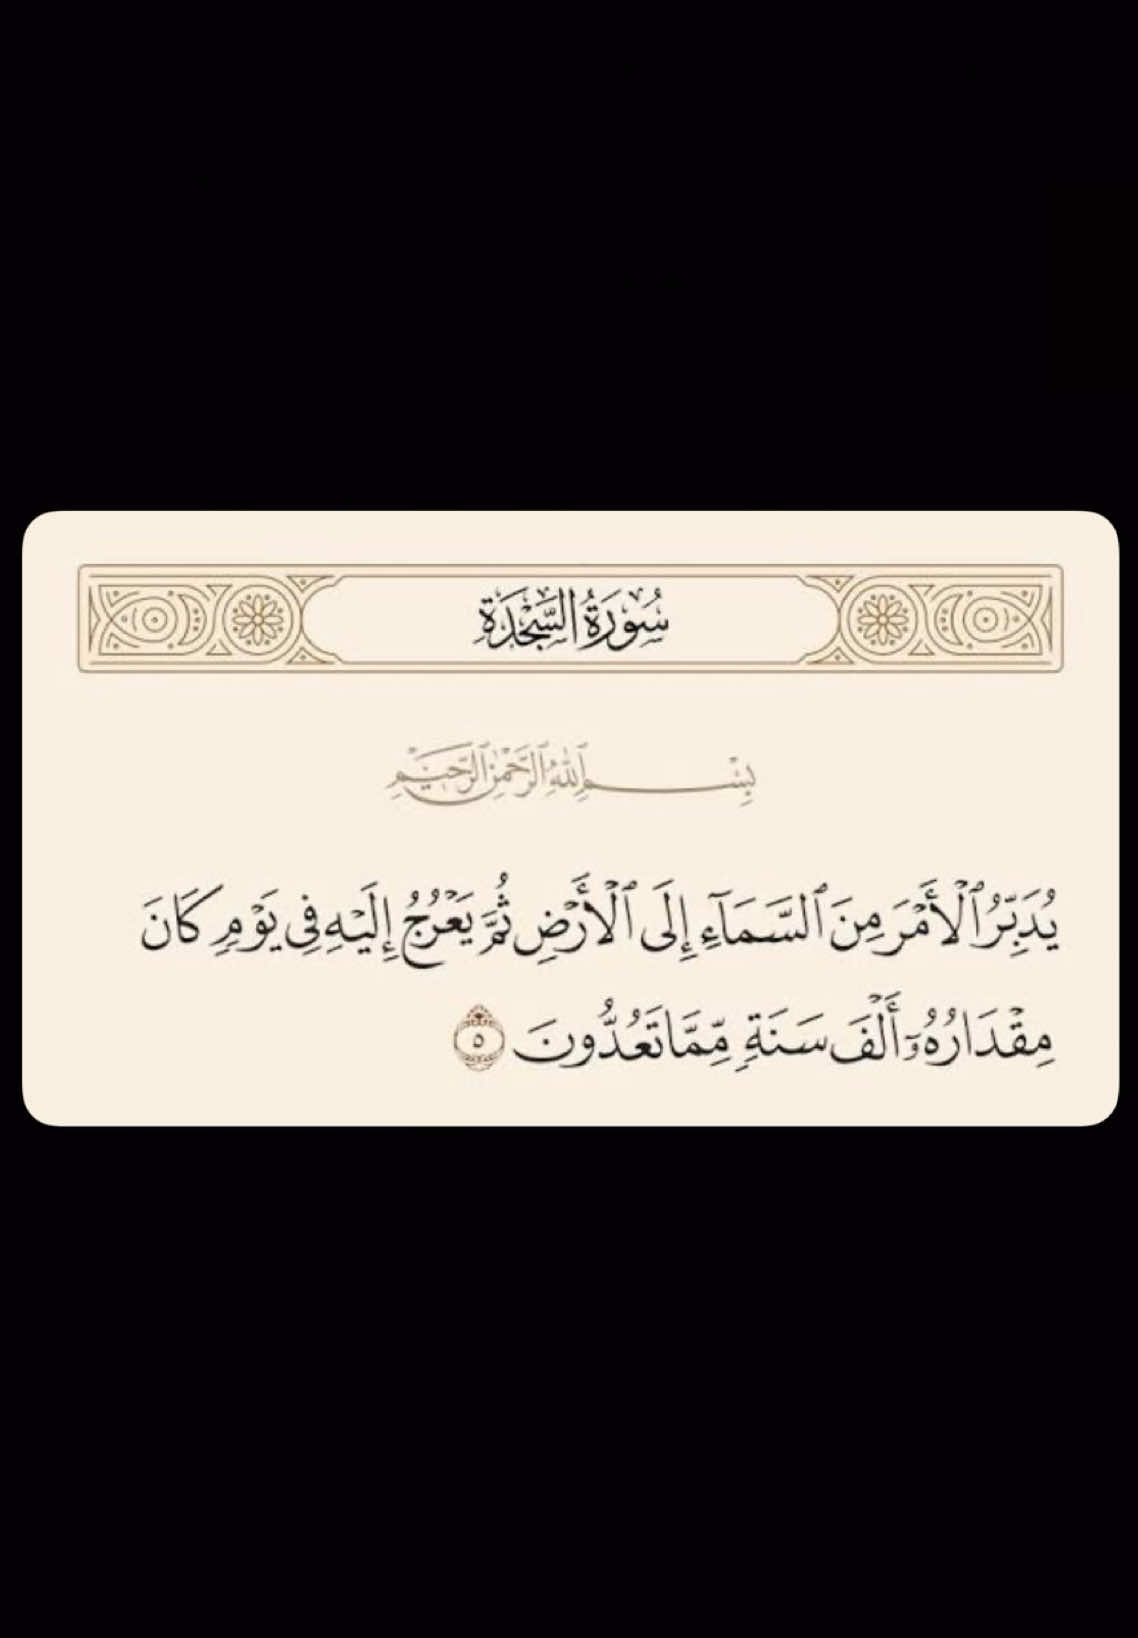 سُورَةُ السَّجْدَةِ
بِسْمِ ٱللَّهِ ٱلرَّحْمَٰنِ ٱلرَّحِيمِ
يُدَبِّرُ ٱلْأَمْرَ مِنَ ٱلسَّمَآءِ إِلَى ٱلْأَرْضِ ثُمَّ يَعْرُجُ إِلَيْهِ فِى يَوْمٍ كَانَ
مِقْدَارُهُۥٓ أَلْفَ سَنَةٍ مِّمَّا تَعُدُّونَ ٥